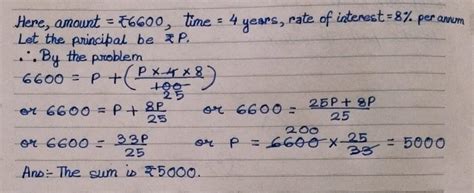 Here, amount = ₹6600, time = 4 years, rate of interest = 8% per annum
Let the principal be ₹P.
∴ By the problem
6600 = P + (P × 4 × 8 / 100 25)
or 6600 = P + 8P/25 or 6600 = 25P + 8P/25
or 6600 = 33P/25 or P = 200 6600 × 25/33 = 5000
Ans:- The sum is ₹5000.